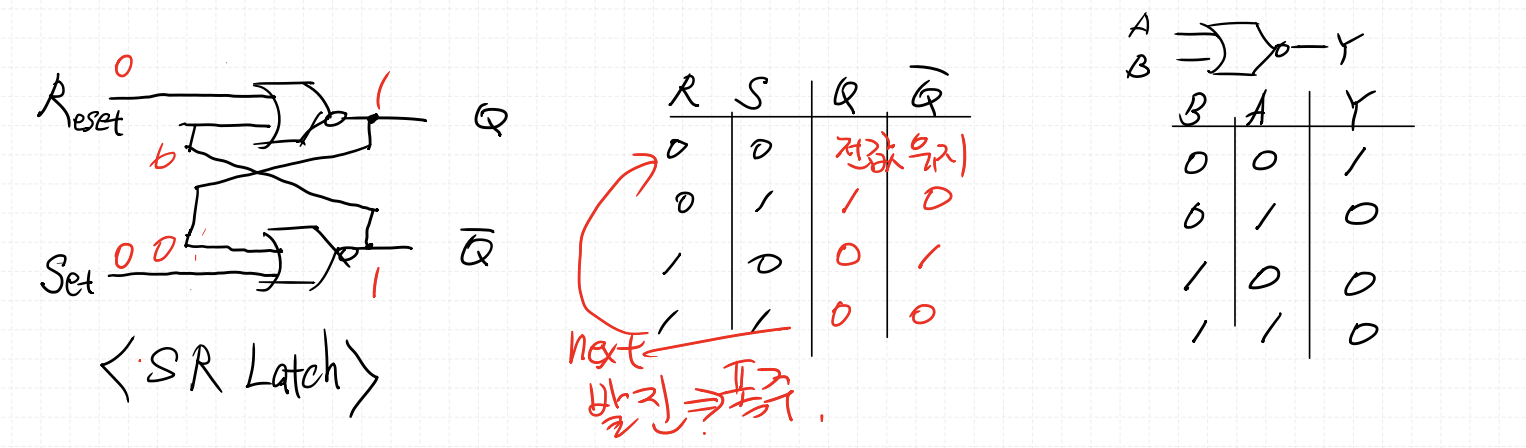 0
Reset
1
Q
0
0 0
Set
1
Q̅
<SR Latch>
R S Q Q̅
0 0 전값 유지
0 1 1 0
1 0 0 1
1 1 0 0
next
발진 ⇒ 폭주.
A
B
Y
B A Y
0 0 1
0 1 0
1 0 0
1 1 0